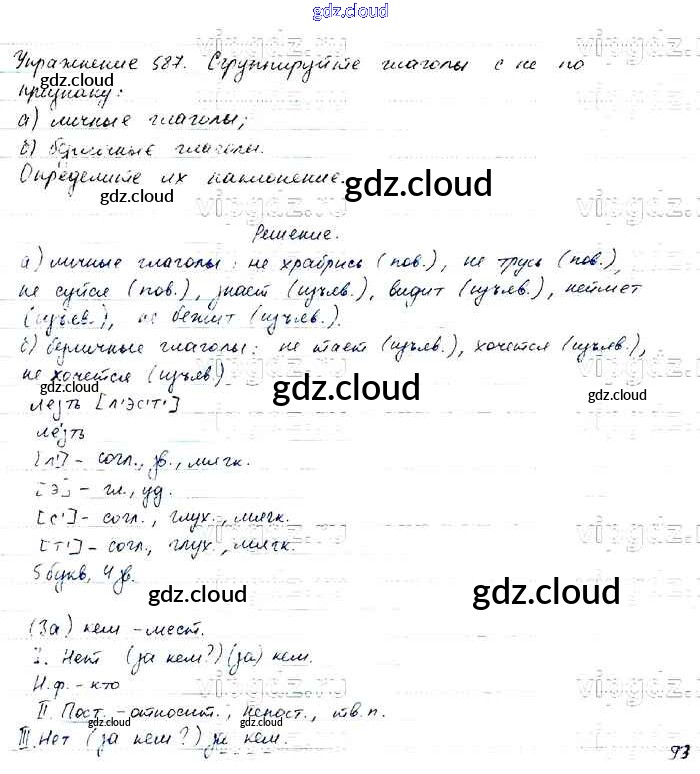 gdz.cloud
Упражнение 587. Сгруппируйте глаголы с не по
признаку:
gdz.cloud
а) личные глаголы;
б) безличные глаголы.
Определите их наклонение.
gdz.cloud
gdz.cloud
Решение.
а) личные глаголы: не храбрись (пов.), не трусь (пов.),
не суйся (пов.), знает (изъяв.), видит (изъяв.), неймет
(изъяв.), не бежит (изъяв.).
б) безличные глаголы: не тает (изъяв.), хочется (изъяв.),
не хочется (изъяв)
gdz.cloud
gdz.cloud
лезть [л'эс'т']
лезть
[л'] - согл., зв., мягк.
[э] - гл., уд.
[с'] - согл., глух., мягк.
[т'] - согл., глух., мягк.
5 букв, 4 зв.
gdz.cloud
gdz.cloud
(За) кем - мест.
I. Нет (за кем?) (за) кем.
Н.ф. - кто
II. Пост. - относит., непост., тв.п.
gdz.cloud
III. Нет (за кем?) за кем.
gdz.cloud
93
vipgdz.ru
vipgdz.ru
vipgdz.ru
vipgdz.ru
vipgdz.ru
vipgdz.ru